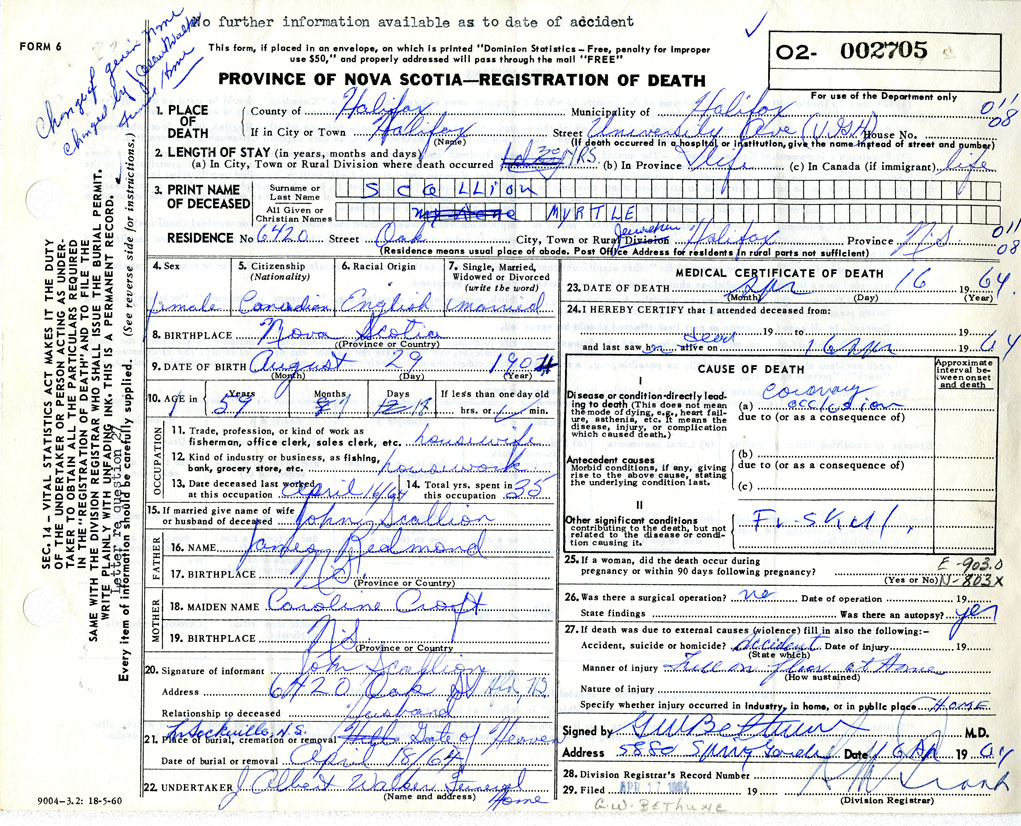 No further information available as to date of accident
FORM 6
This form, if placed in an envelope, on which is printed "Dominion Statistics – Free, penalty for improper
use $50," and properly addressed will pass through the mail "FREE"
PROVINCE OF NOVA SCOTIA—REGISTRATION OF DEATH
O2- 002705
For use of the Department only
Change of given name
changed by Albert Walker
Funeral Home
011
08
1. PLACE OF DEATH
County of Halifax Municipality of Halifax
If in City or Town Halifax Street University Ave (V.G.H) House No.
(Name) (If death occurred in a hospital or institution, give the name instead of street and number)
2. LENGTH OF STAY (in years, months and days)
(a) In City, Town or Rural Division where death occurred YRS. (b) In Province life (c) In Canada (if immigrant) life
3. PRINT NAME OF DECEASED
Surname or Last Name SCALLION
All Given or Christian Names MYRTLE
RESIDENCE No 6420 Street Oak City, Town or Rural Division Halifax Province N.S.
011
08
(Residence means usual place of abode. Post Office Address for residents in rural parts not sufficient)
4. Sex
5. Citizenship (Nationality)
6. Racial Origin
7. Single, Married, Widowed or Divorced (write the word)
female Canadian English married
8. BIRTHPLACE Nova Scotia
(Province or Country)
9. DATE OF BIRTH August 29 1904
(Month) (Day) (Year)
10. AGE in Years Months Days If less than one day old
59 7 18 hrs. or min.
OCCUPATION
11. Trade, profession, or kind of work as
fisherman, office clerk, sales clerk, etc. housewife
12. Kind of industry or business, as fishing,
bank, grocery store, etc. housework
13. Date deceased last worked at this occupation April 16/64
14. Total yrs. spent in this occupation 35
15. If married give name of wife
or husband of deceased John Scallion
FATHER
16. NAME James Redmond
17. BIRTHPLACE N.S.
(Province or Country)
MOTHER
18. MAIDEN NAME Caroline Croft
19. BIRTHPLACE N.S.
(Province or Country)
20. Signature of informant John Scallion
Address 6420 Oak St Hfx, N.S.
Relationship to deceased Husband
Sackville, N.S.
21. Place of burial, cremation or removal Gate of Heaven
Date of burial or removal April 18/64
22. UNDERTAKER J Albert Walker Funeral Home
(Name and address)
9004–3.2: 18-5-60
MEDICAL CERTIFICATE OF DEATH
23. DATE OF DEATH Apr 16 1964
(Month) (Day)
24. I HEREBY CERTIFY that I attended deceased from:
19 to 19
and last saw h alive on dead 16 Apr 1964
CAUSE OF DEATH
Approximate interval between onset and death
I
Disease or condition directly leading to death (This does not mean the mode of dying, e.g., heart failure, asthenia, etc. It means the disease, injury, or complication which caused death.)
(a) coronary occlusion
due to (or as a consequence of)
Antecedent causes
Morbid conditions, if any, giving rise to the above cause, stating the underlying condition last.
(b)
due to (or as a consequence of)
(c)
II
Other significant conditions
contributing to the death, but not related to the disease or condition causing it.
Fr. skull.
25. If a woman, did the death occur during
pregnancy or within 90 days following pregnancy?
(Yes or No)
E-903.0
N-803X
26. Was there a surgical operation? no Date of operation 19
State findings Was there an autopsy? yes
27. If death was due to external causes (violence) fill in also the following:–
Accident, suicide or homicide? accident Date of injury 19
(State which)
Manner of injury fell on floor at Home
(How sustained)
Nature of injury
Specify whether injury occurred in Industry, in home, or in public place HOME
Signed by GW Bethune M.D.
Address 5880 Spring Garden Date 16 Apr 1964
28. Division Registrar's Record Number
29. Filed APR 17 1964 19
(Division Registrar)
G.W. BETHUNE
SEC. 14 – VITAL STATISTICS ACT MAKES IT THE DUTY
OF THE UNDERTAKER OR PERSON ACTING AS UNDER-
TAKER TO OBTAIN ALL THE PARTICULARS REQUIRED
IN THE "REGISTRATION OF DEATH" AND TO FILE THE
SAME WITH THE DIVISION REGISTRAR WHO SHALL ISSUE THE BURIAL PERMIT.
WRITE PLAINLY WITH UNFADING INK. THIS IS A PERMANENT RECORD.
letter re question 27
Every item of information should be carefully supplied. (See reverse side for instructions.)